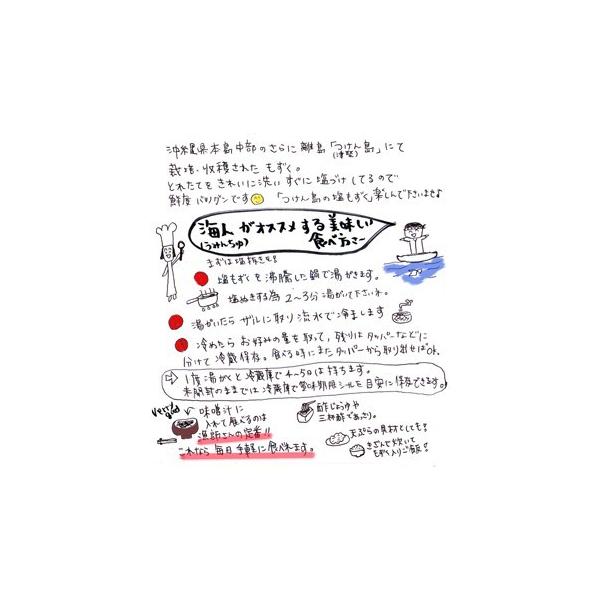 沖縄県本島中部のさらに離島「つけん島」にて
(津堅)
栽培・収穫された もずく。
とれたてをきれいに洗い すぐに塩づけしてるので
鮮度バツグンです 「つけん島の塩もずく」楽しんで下さいませ♪
海人がオススメする美味しい
(うみんちゅ) 食べ方で〜
まずは塩抜きを!
塩もずくを沸騰した鍋で湯がきます。
塩ぬきする為2〜3分湯がいて下さいね。
湯がいたらザルに取り流水で冷まします
冷めたらお好みの量を取って、残りはタッパーなどに
分けて冷蔵保存。食べる時にまたタッパーから取り出せばOK。
⇨ 1度湯がくと冷蔵庫で4〜5日は持ちます。
未開封のままでは冷蔵庫で賞味期限シールを目安に保存できます。
Very good
味噌汁に
入れて食べるのは
漁師さんの定番!!
これなら毎日手軽に食べれます。
酢じょうゆや
三杯酢であさり。
天ぷらの具材としても!
きざんで炊いて
もずく入りご飯!